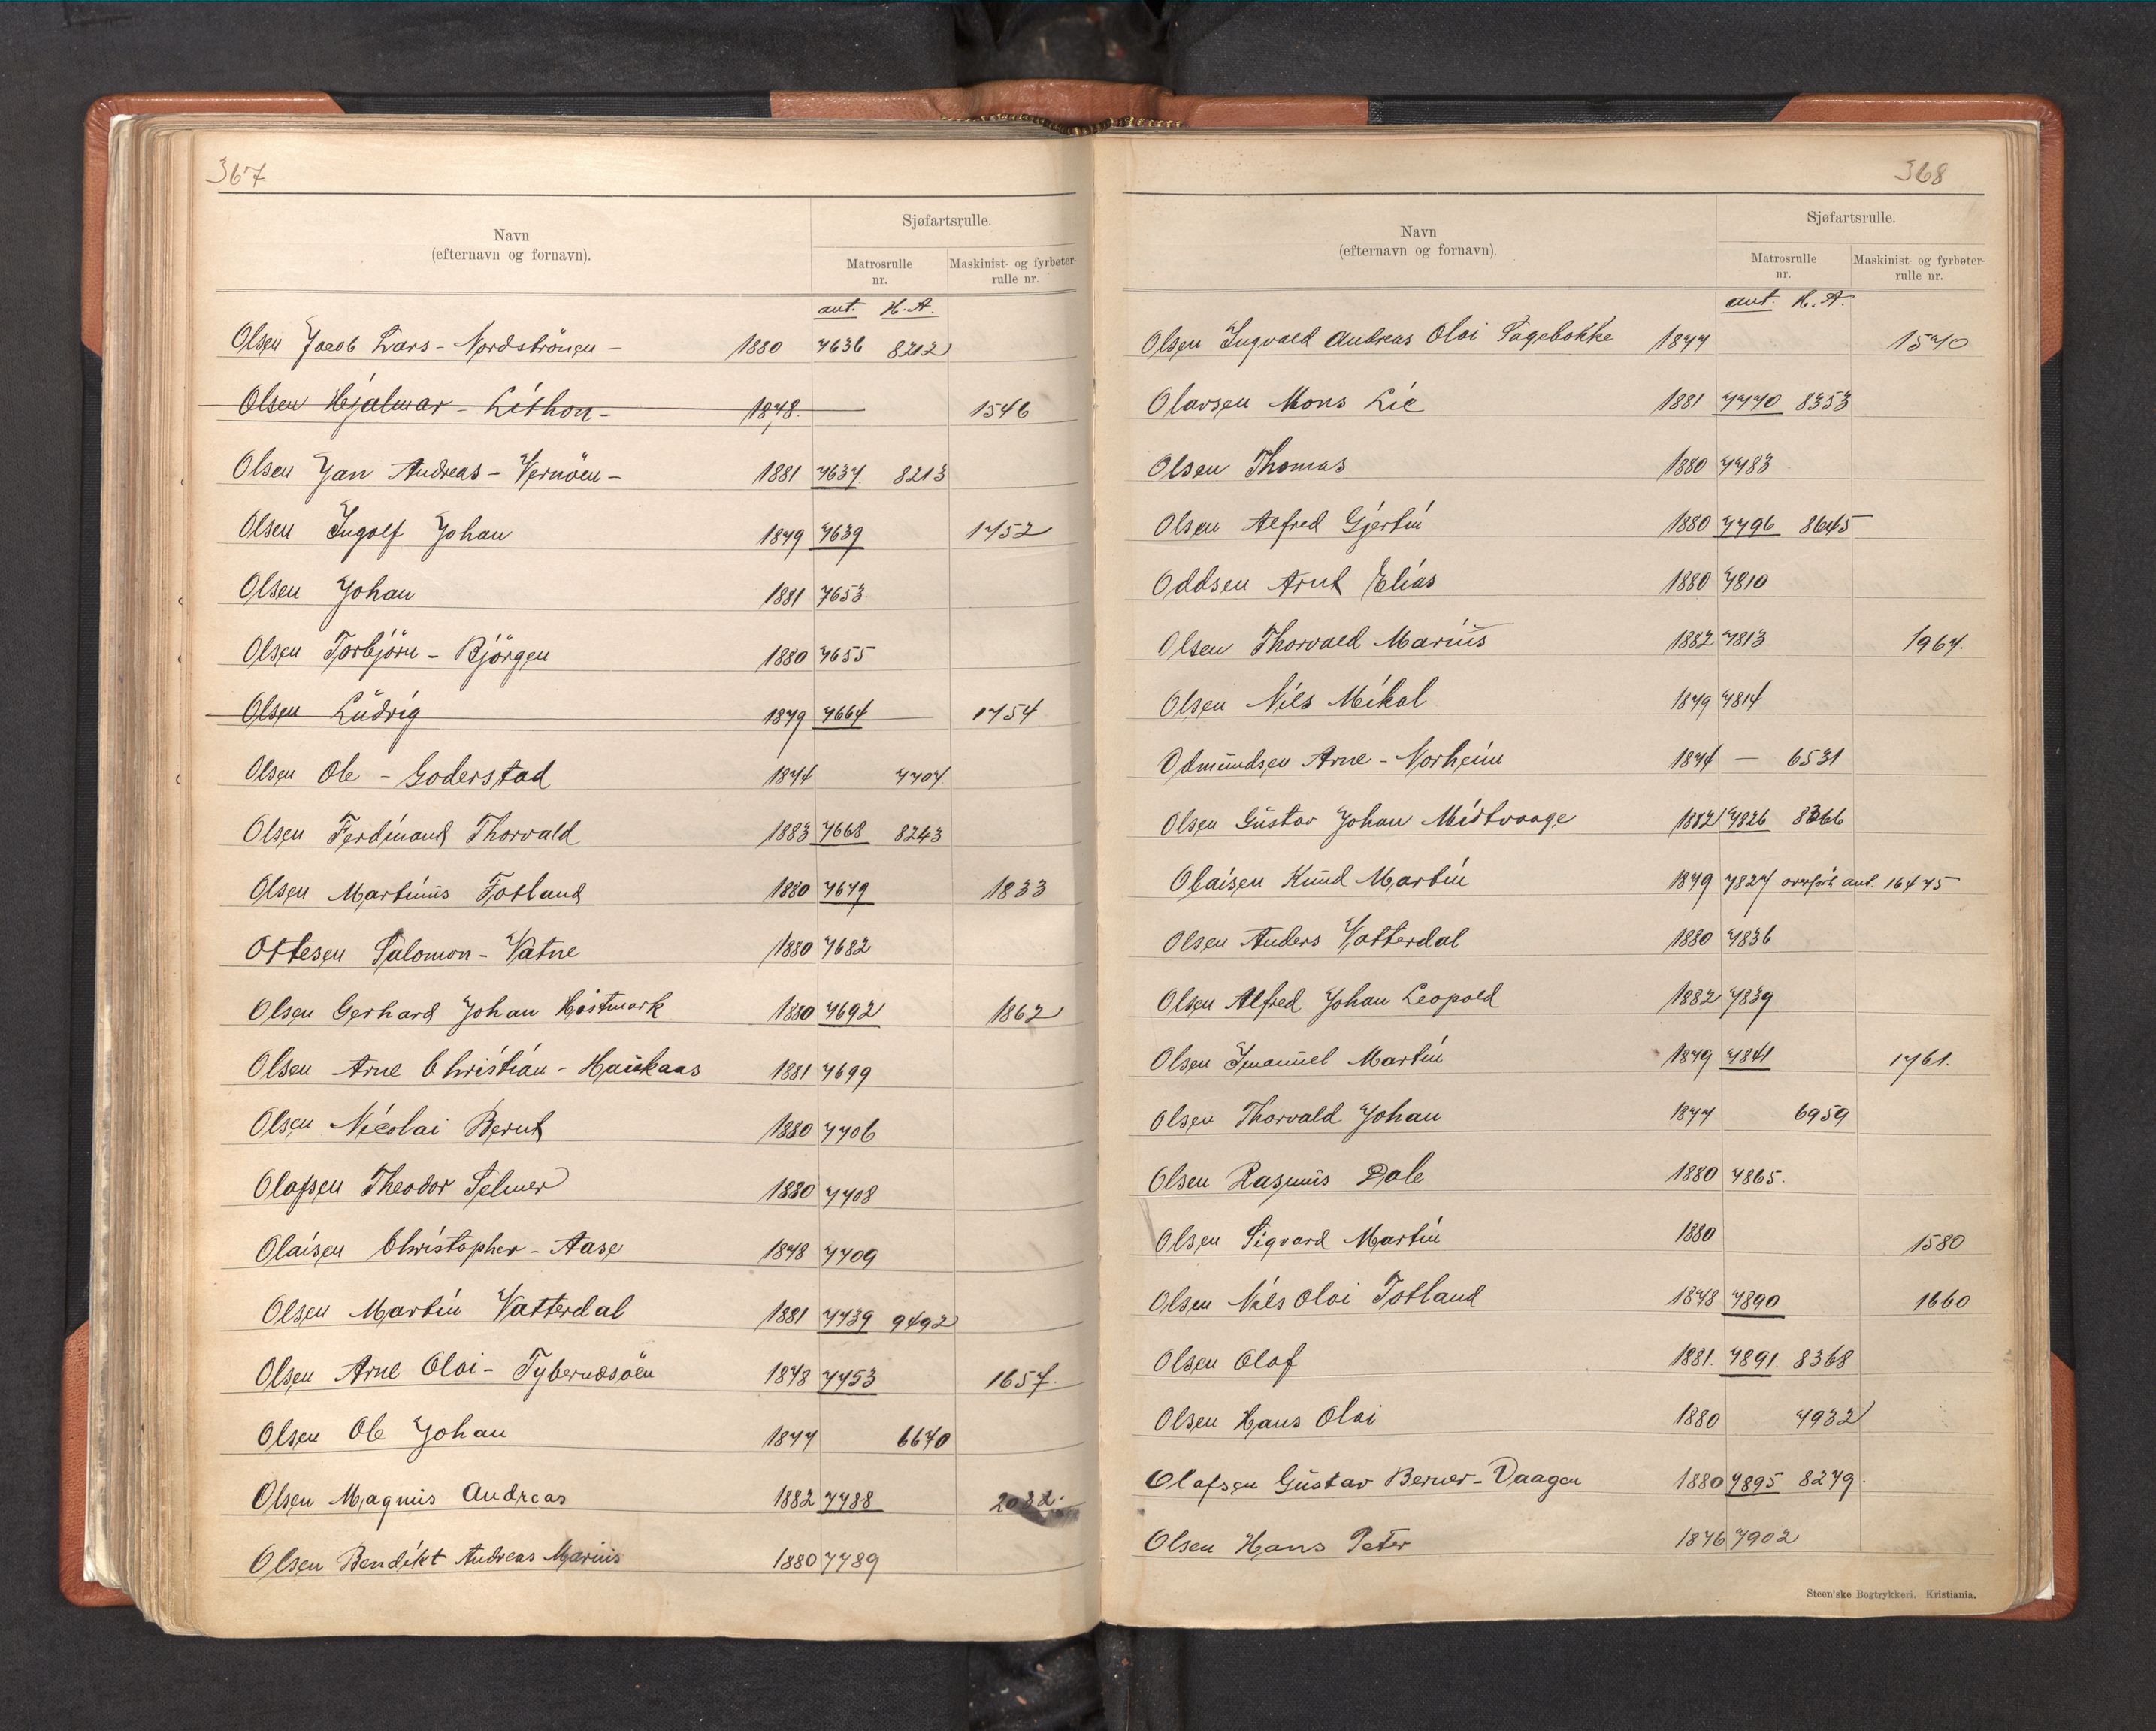 367
Navn
(efternavn og fornavn).
Sjøfartsrulle.
Matrosrulle
nr.
Maskinist- og fyrbøter-
rulle nr.
ant. H.A.
Olsen Jacob Lars - Nordströnen - 1880 7636 8212
Olsen Hjalmar - Lithon - 1878. 1546
Olsen Jan Andreas - Vernöen - 1881 7637. 8213
Olsen Ingolf Johan 1879 7639 1752
Olsen Johan 1881 7653.
Olsen Torbjörn - Björgen 1880 7655
Olsen Ludvig 1879 7664 1754
Olsen Ole - Goderstad 1874 7704
Olsen Ferdinand Thorvald 1883 7668 8243
Olsen Martinus Totland 1880 7679 1833
Ottesen Salomon - Vatne 1880 7682
Olsen Gerhard Johan Hostmark 1880 7692 1862
Olsen Arne Christian - Haukaas 1881 7699
Olsen Nicolai Bernt 1880 7706
Olafsen Theodor Selmer 1880 7708
Olaisen Christopher - Aase 1878 7709
Olsen Martin Vatterdal 1881 7739 9492
Olsen Arne Olai - 1878 7753 1657.
Olsen Ole Johan 1877 6670
Olsen Magnus Andreas 1882 7788 2032.
Olsen Bendikt Andreas Marius 1880 7789
368
Navn
(efternavn og fornavn).
Sjøfartsrulle.
Matrosrulle
nr.
Maskinist- og fyrbøter-
rulle nr.
ant. H.A.
Olsen Ingvald Andreas Olai Pagebokke 1877 1570
Olavsen Mons Lie 1881 7770 8353
Olsen Thomas 1880 7783
Olsen Alfred Gjertin 1880 7796 8645
Oddsen Arnt Elias 1880 7810
Olsen Thorvald Marius 1882 7813 1967.
Olsen Nils Mikal 1879 7814
Odmundsen Arne - Norheim 1874 — 6531
Olsen Gustav Johan Midtvaage 1882 7826 8366
Olaisen Knud Martin 1879 7827 overført ant. 16475
Olsen Anders Vatterdal 1880 7836
Olsen Alfred Johan Leopold 1882 7839
Olsen Imanuel Martin 1879 7841 1761.
Olsen Thorvald Johan 1877 6959
Olsen Rasmus Dale 1880 7865.
Olsen Sigvard Martin 1880 1580
Olsen Nils Olai Totland 1878 7890 1660
Olsen Olaf 1881. 7891. 8368
Olsen Hans Olai 1880 7932
Olafsen Gustav Berner - Vaagen 1880 7895 8279.
Olsen Hans Peter 1876 7902
Steen'ske Bogtrykkeri. Kristiania.